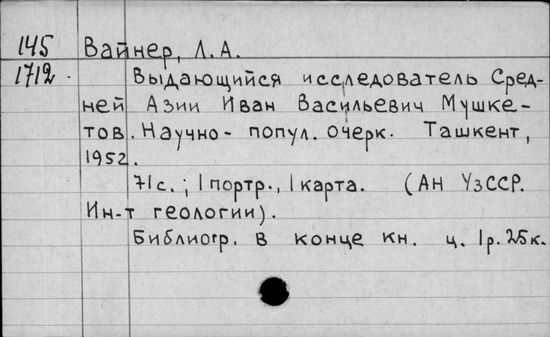 145 Вайнер, Л. А.
1712. Выдающийся исследователь Сред-
ней Азии Иван Васильевич Мушке-
тов. Научно- попул. очерк. Ташкент,
1952.
71с.; 1 портр., 1 карта. (АН УзССР.
Ин-т геологии).
Библиогр. в конце кн. ц. 1р. 25к.